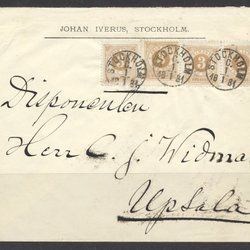 JOHAN IVERUS, STOCKHOLM.
STOCKHOLM
C.
18 1 81
STOCKHOLM
C.
18 1 81
3
Disponenten
Herr C. J. Widma
Upsala